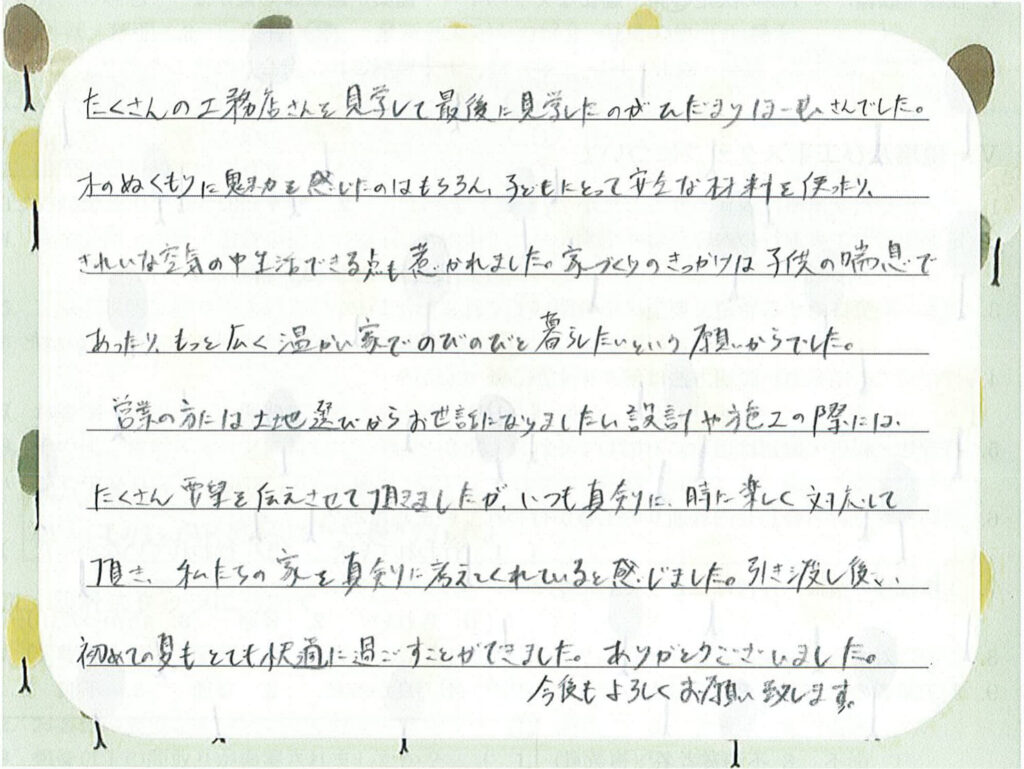 たくさんの工務店さんを見学して最後に見学したのがひだまりほーむさんでした。
木のぬくもりに魅力を感じたのはもちろん、子どもにとって安全な材料を使ったり、
きれいな空気の中生活できる点も惹かれました。家づくりのきっかけは子供の喘息で
あったり、もっと広く温かい家でのびのびと暮らしたいという願いからでした。
営業の方には土地選びからお世話になりましたし、設計や施工の際には、
たくさん要望を伝えさせて頂きましたが、いつも真剣に、時に楽しく対応して
頂き、私たちの家を真剣に考えてくれていると感じました。引き渡し後、
初めての夏もとても快適に過ごすことができました。ありがとうございました。
今後もよろしくお願い致します。